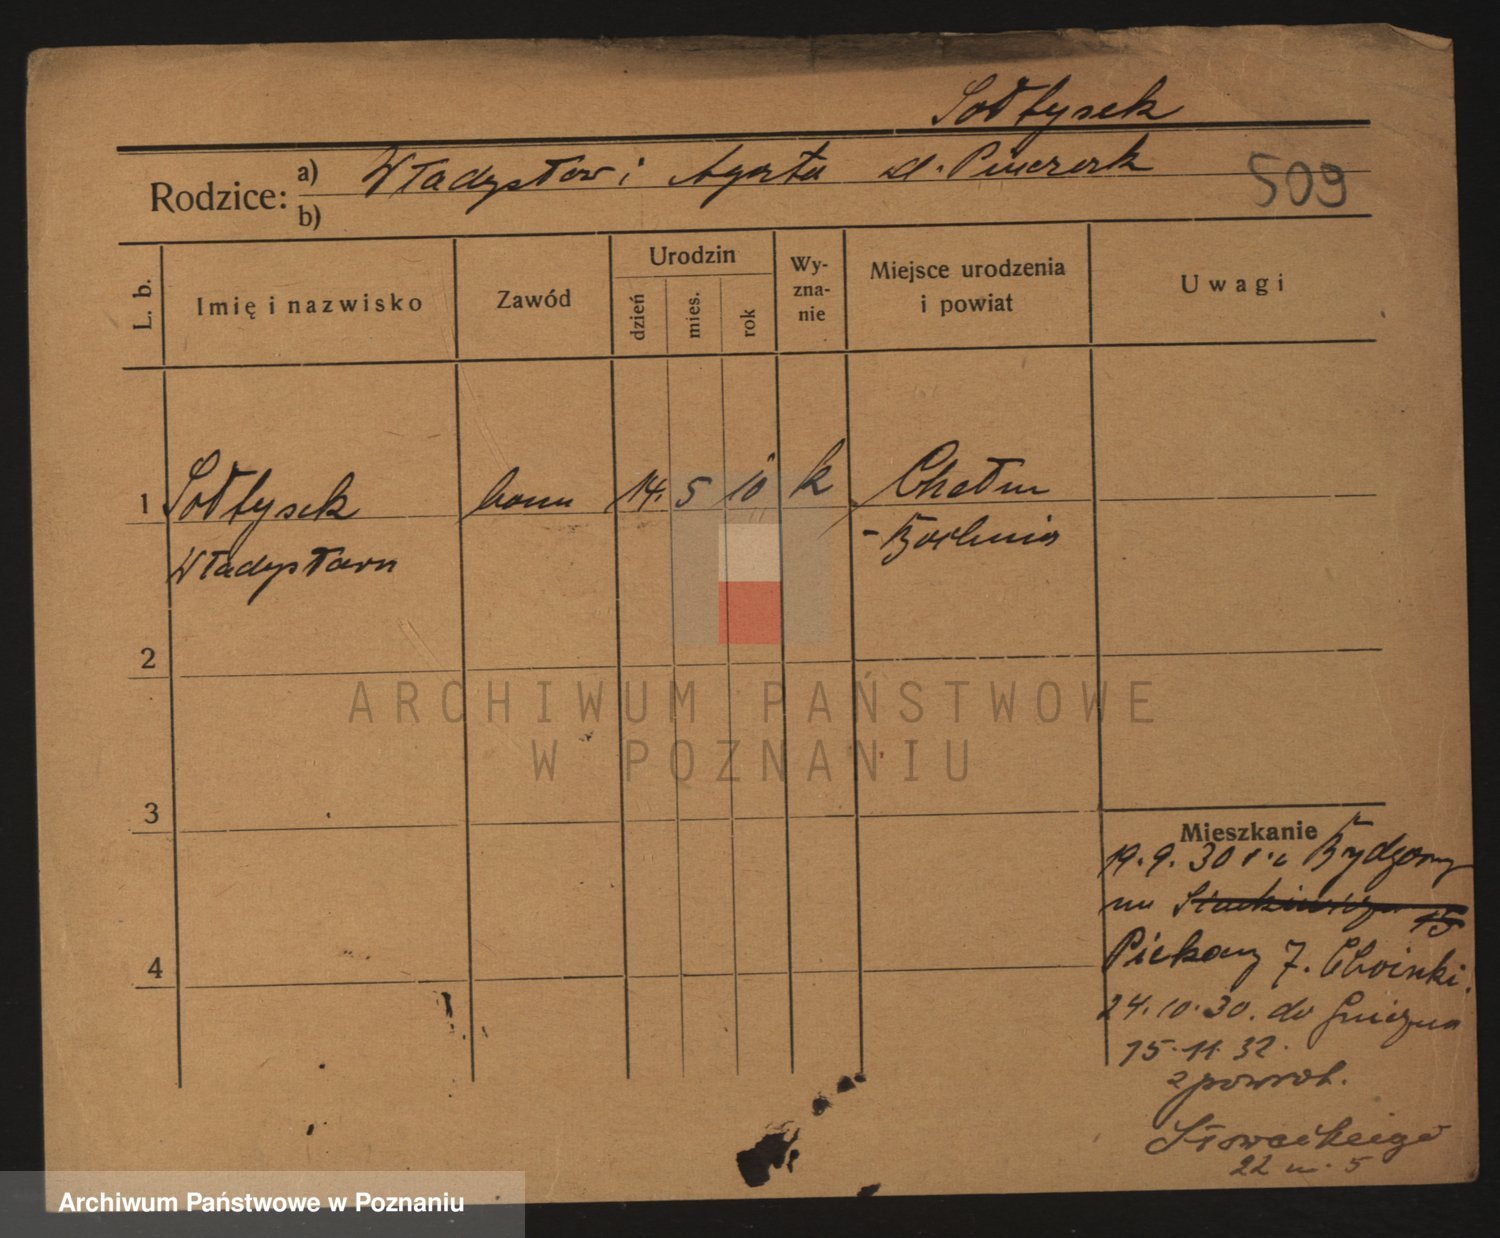 Sołtysek
Rodzice: a) Władysław i Agata d. Pinczerek
b)
509
L. b.
Imię i nazwisko
Zawód
Urodzin
dzień
mies.
rok
Wy-
zna-
nie
Miejsce urodzenia
i powiat
Uwagi
1 Sołtysek 14. 5 10 k Chełm
Władysław - Bochnia
2
3
4
Mieszkanie
19. 9. 30 r. z Bydgosz
Piekary 7. Choinki.
24. 10. 30. do Gniezna
15. 11. 32.
z powrot.
Słowackiego
22 m. 5
ARCHIWUM PAŃSTWOWE
W POZNANIU
Archiwum Państwowe w Poznaniu